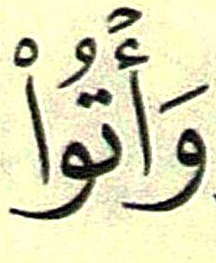 وَأُتُوا۟